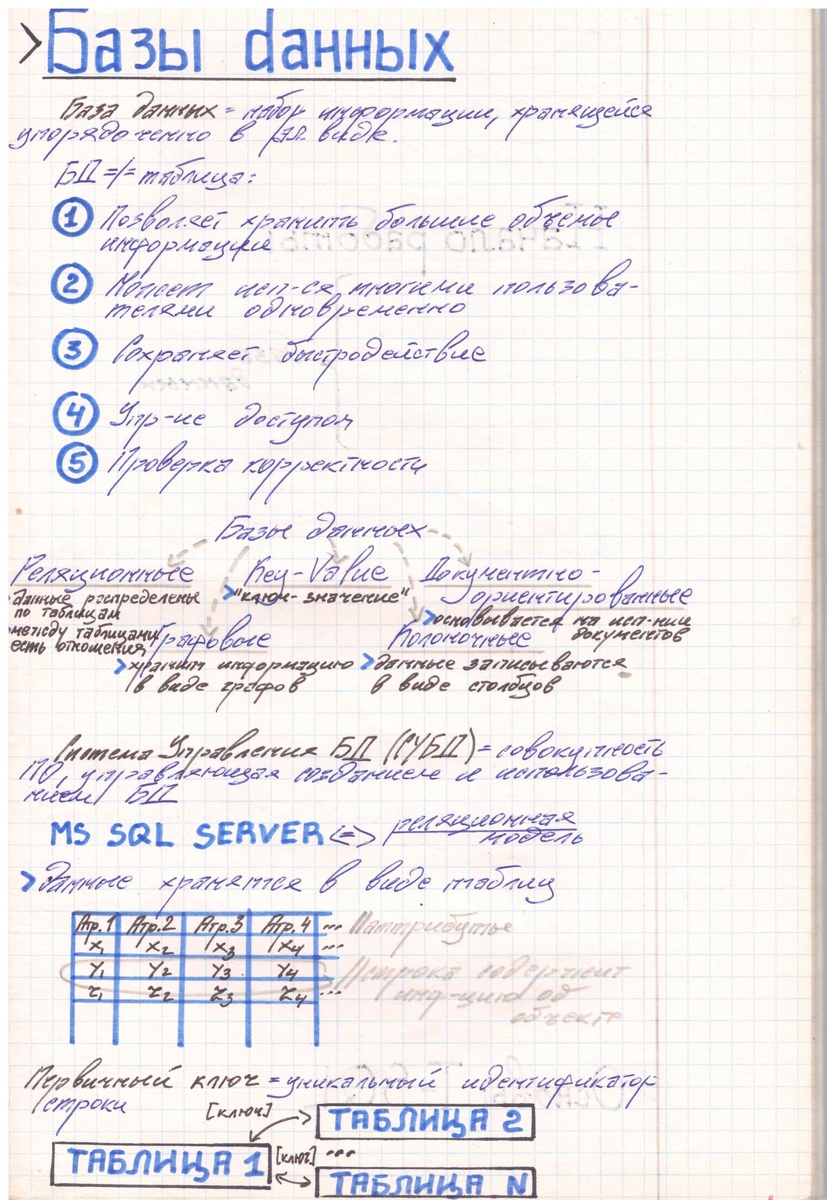 >Базы данных
База данных = набор информации, хранящейся
упорядоченно в эл. виде.
БД =/= таблица:
1 Позволяет хранить большие объёмы
информации
2 Может исп-ся многими пользова-
телями одновременно
3 Сохраняет быстродействие
4 Упр-ие доступом
5 Проверка корректности
Базы данных
Реляционные
данные распределены
по таблицам
между таблицами
есть отношения
Key-Value
>"ключ-значение"
Документно-
ориентированные
>основывается на исп-нии
документов
Графовые
>хранит информацию
в виде графов
Колоночные
>данные записываются
в виде столбцов
Система Управления БД (СУБД) = совокупность
ПО, управляющая созданием и использова-
нием БД
MS SQL SERVER <=> реляционная
модель
>Данные хранятся в виде таблиц
Атр.1 Атр.2 Атр.3 Атр.4 ... //аттрибуты
x1 x2 x3 x4 ...
y1 y2 y3 y4 //строка содержит
инф-цию об
объекте
z1 z2 z3 z4 ...
Первичный ключ = уникальный идентификатор
строки
[ключ] ТАБЛИЦА 2
ТАБЛИЦА 1 [ключ] ...
ТАБЛИЦА N